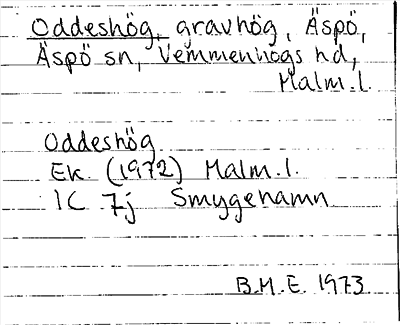 Oddeshög, gravhög, Äspö,
Äspö sn, Vemmenhögs hd,
Malm.l.
Oddeshög
Ek. (1972) Malm.l.
1C 7j Smygehamn
B.M.E. 1973